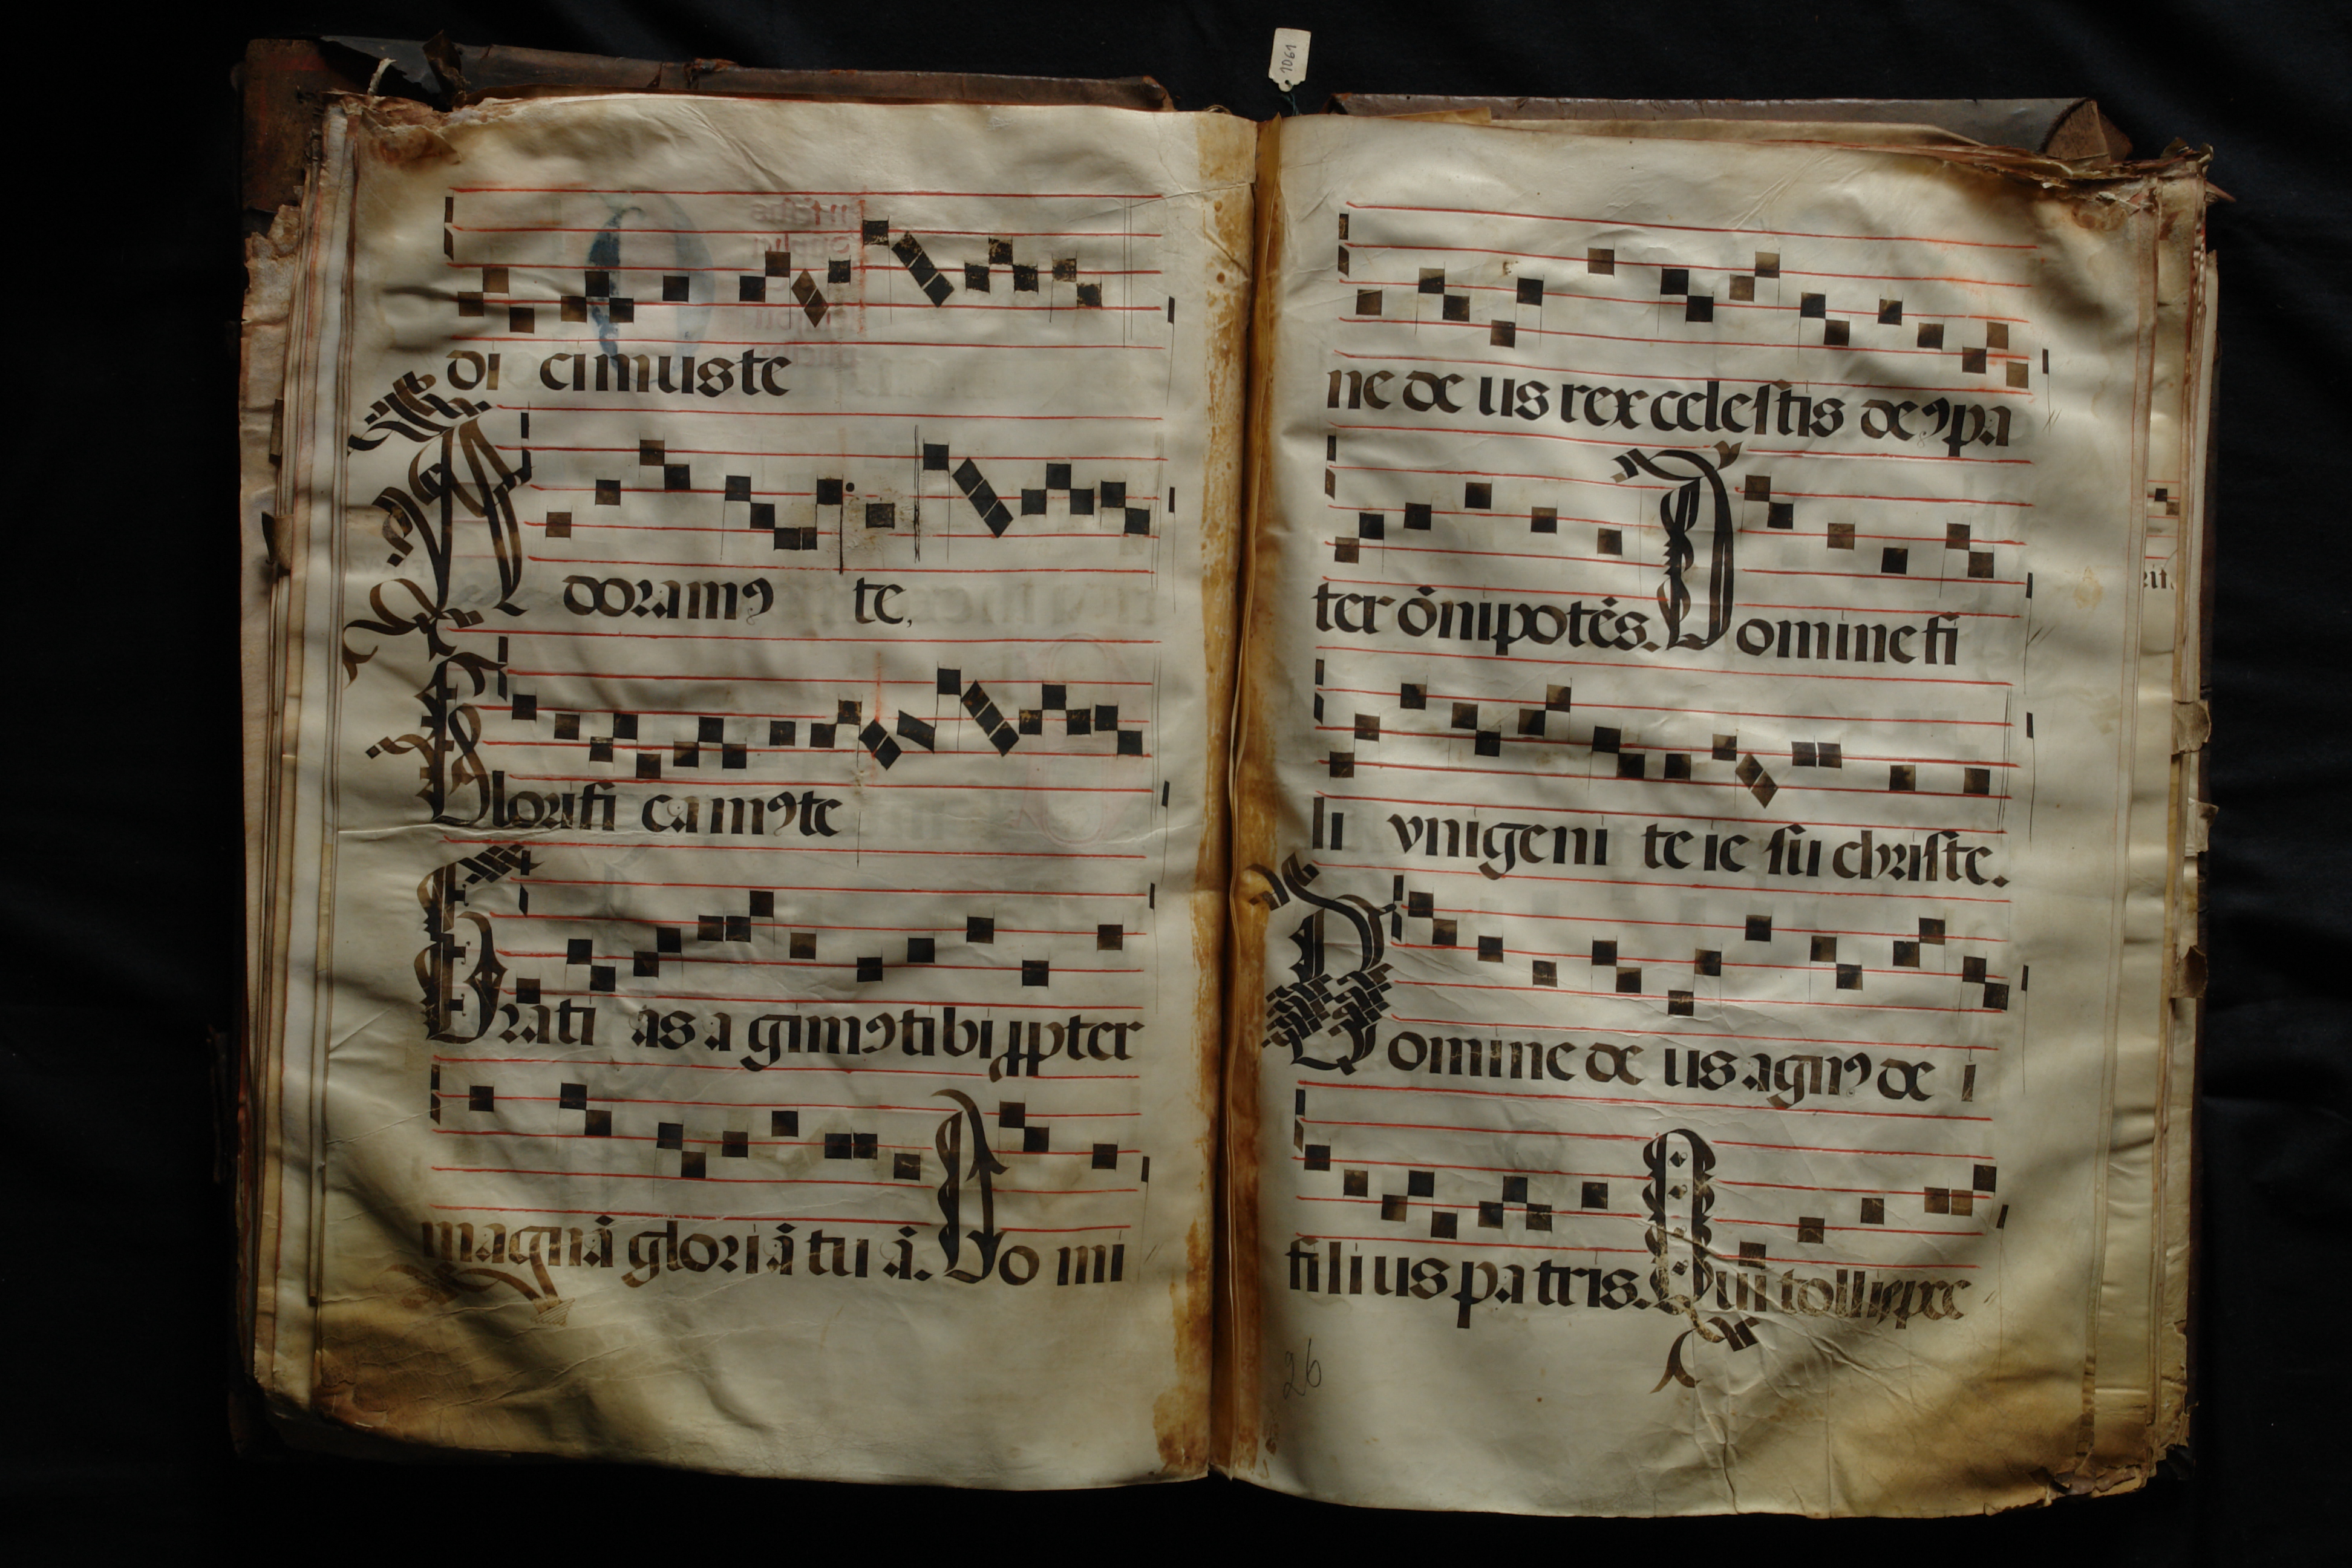 1061
di cimus te
Adoramꝰ te,
Glorifi camꝰ te
Grati as a gimꝰ ti bi ꝓpter
magnā gloriā tu ā. Do mi
ne de us rex celeſtis deꝰ pa
ter ōnipotēs. Domine fi
li vnigeni te ie ſu chriſte.
Domine de us agnꝰ de i
filius patris. Qui tollis pec
26